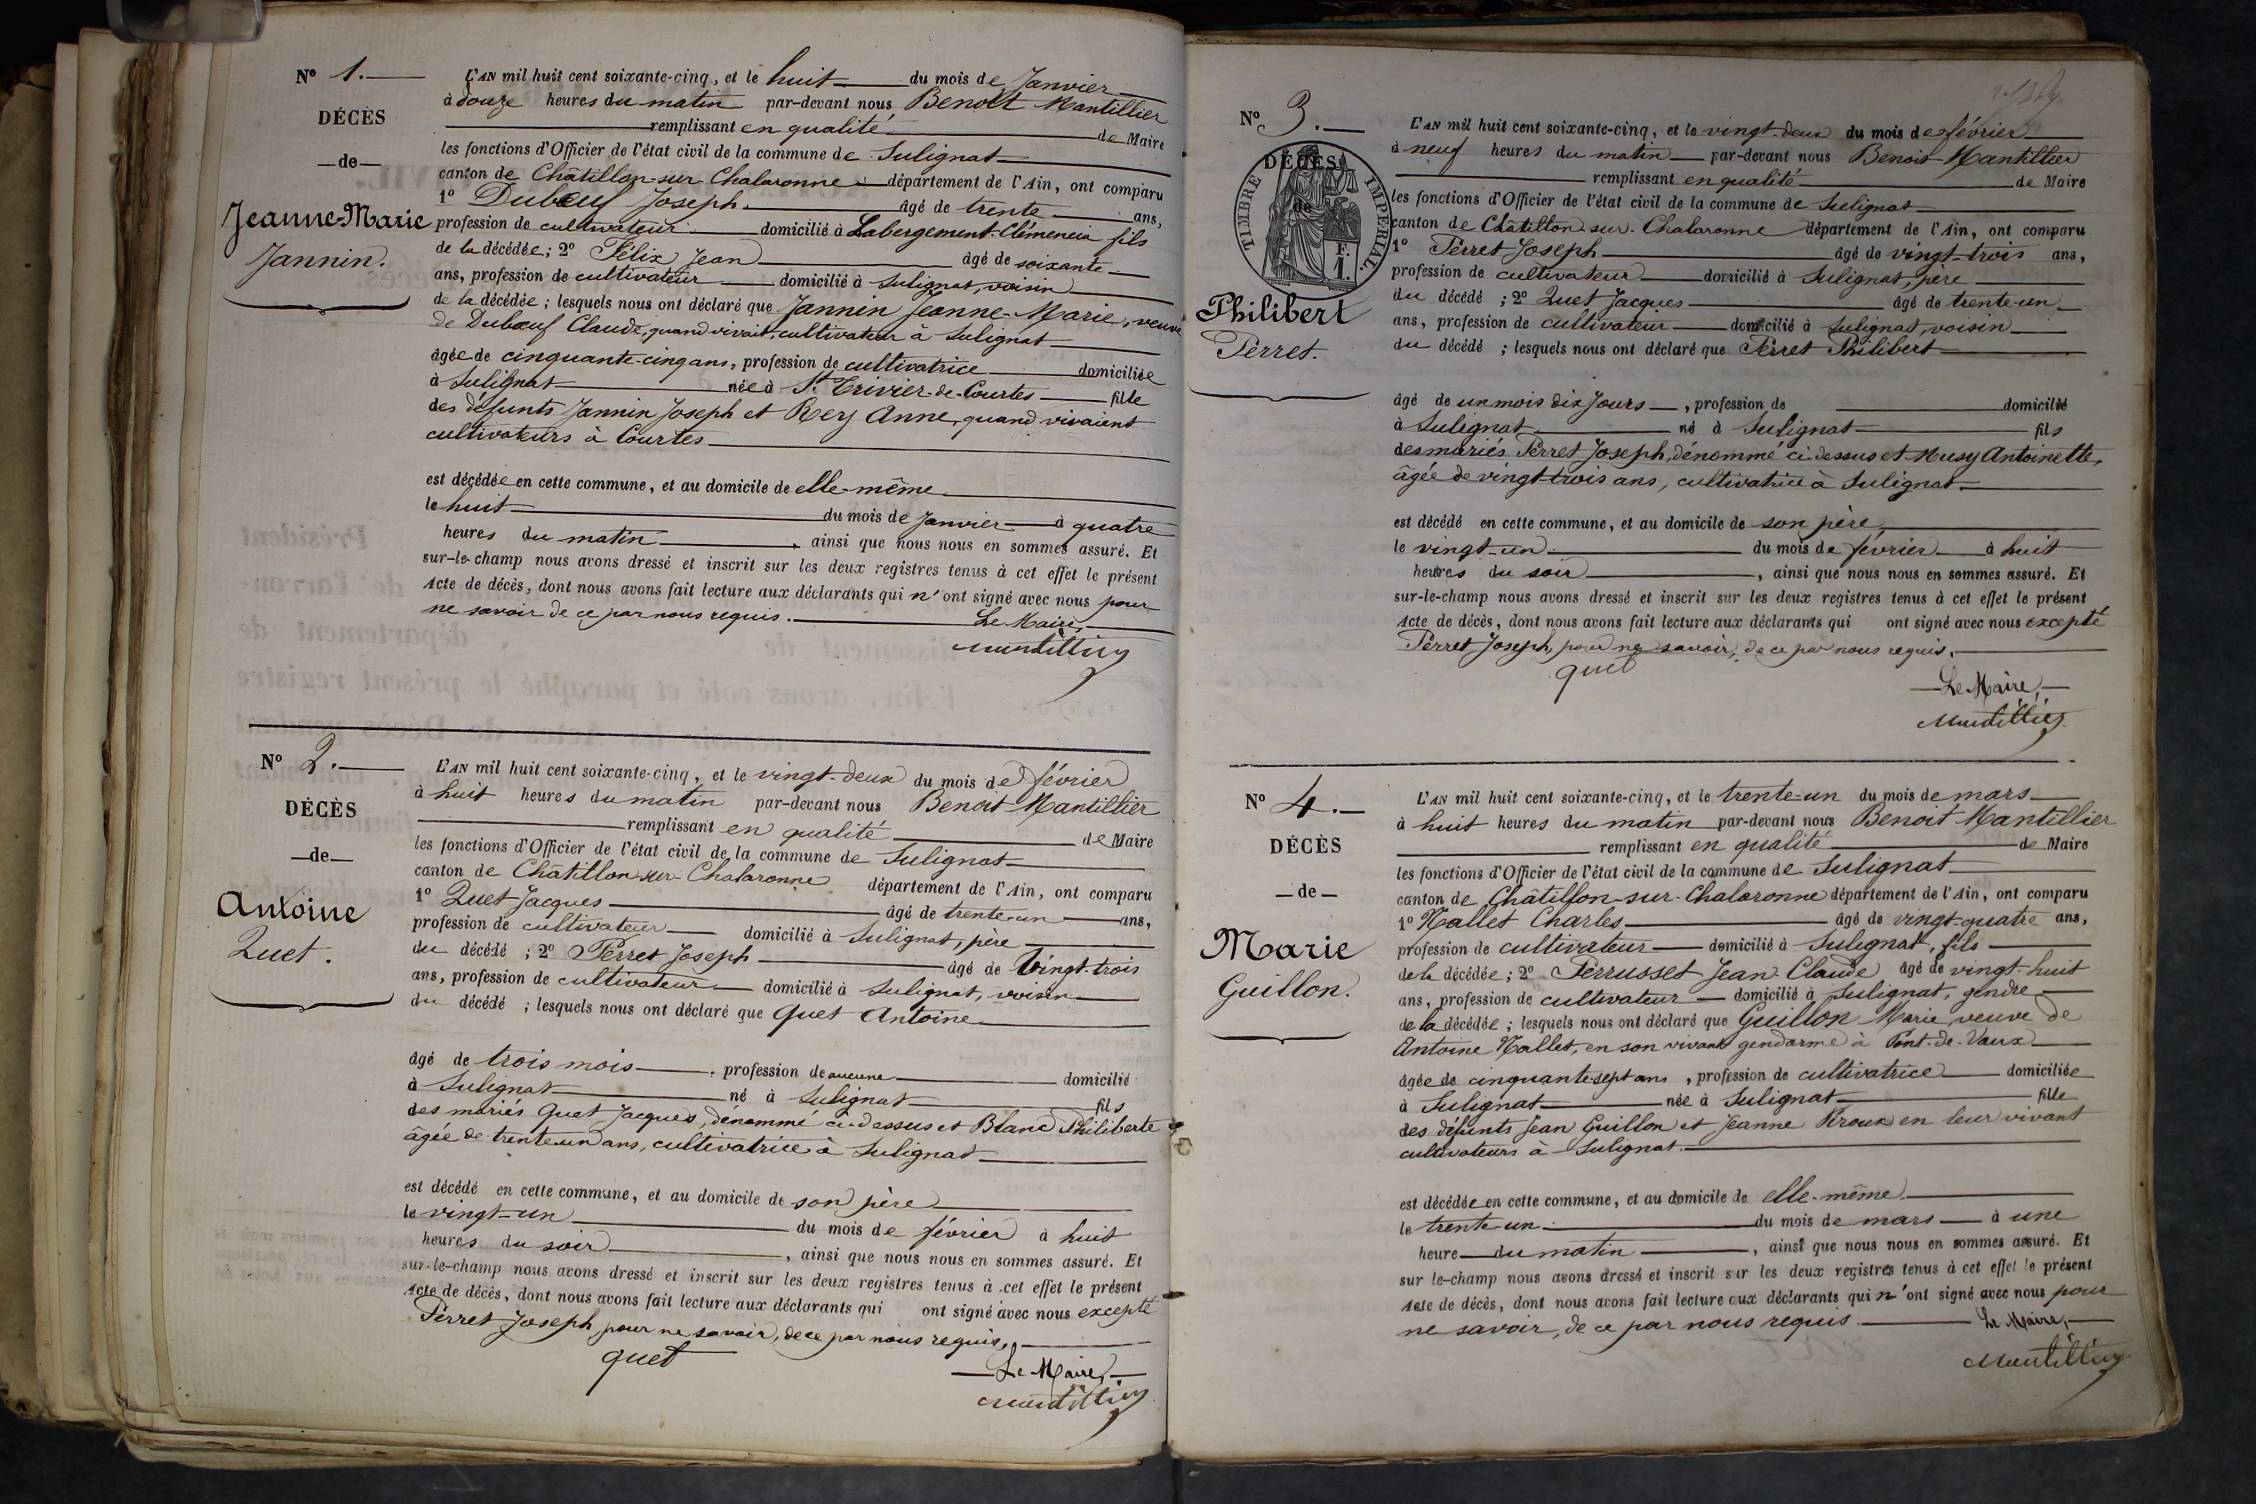 N° 1.
DÉCÈS
de
Jeanne-Marie
Jannin.
L'AN mil huit cent soixante-cinq, et le huit du mois de Janvier
à douze heures du matin par-devant nous Benoît Mantillier
remplissant en qualité de Maire
les fonctions d'Officier de l'état civil de la commune de Sulignat
canton de Châtillon-sur-Chalaronne département de l'Ain, ont comparu
1° Dubœuf Joseph âgé de trente ans,
profession de cultivateur domicilié à Labergement-Clémencia fils
de la décédée; 2° Félix Jean âgé de soixante
ans, profession de cultivateur domicilié à Sulignat, voisin
de la décédée; lesquels nous ont déclaré que Jannin Jeanne-Marie, veuve
de Dubœuf Claude, quand vivait, cultivateur à Sulignat
âgée de cinquante-cinq ans, profession de cultivatrice domiciliée
à Sulignat née à St Trivier-de-Courtes fille
des défunts Jannin Joseph et Rey Anne, quand vivaient
cultivateurs à Courtes
est décédée en cette commune, et au domicile de elle-même
le huit du mois de Janvier à quatre
heures du matin, ainsi que nous nous en sommes assuré. Et
sur-le-champ nous avons dressé et inscrit sur les deux registres tenus à cet effet le présent
Acte de décès, dont nous avons fait lecture aux déclarants qui n'ont signé avec nous pour
ne savoir de ce par nous requis. Le Maire,
Mantillier
N° 2.
DÉCÈS
de
Antoine
Quet.
L'AN mil huit cent soixante-cinq, et le vingt-deux du mois de février
à huit heures du matin par-devant nous Benoit Mantillier
remplissant en qualité de Maire
les fonctions d'Officier de l'état civil de la commune de Sulignat
canton de Châtillon-sur-Chalaronne département de l'Ain, ont comparu
1° Quet Jacques âgé de trente-un ans,
profession de cultivateur domicilié à Sulignat, père
du décédé; 2° Perret Joseph âgé de vingt-trois
ans, profession de cultivateur domicilié à Sulignat, voisin
du décédé; lesquels nous ont déclaré que Quet Antoine
âgé de trois mois, profession de aucune domicilié
à Sulignat né à Sulignat fils
des mariés Quet Jacques, dénommé ci-dessus et Blanc Philiberte
âgée de trente-un ans, cultivatrice à Sulignat
est décédé en cette commune, et au domicile de son père
le vingt-un du mois de février à huit
heures du soir, ainsi que nous nous en sommes assuré. Et
sur-le-champ nous avons dressé et inscrit sur les deux registres tenus à cet effet le présent
Acte de décès, dont nous avons fait lecture aux déclarants qui ont signé avec nous excepté
Perret Joseph pour ne savoir, de ce par nous requis.
quet
Le Maire,
Mantillier
N° 3.
DÉCÈS
de
TIMBRE IMPÉRIAL.
F.
1.
Philibert
Perret.
L'AN mil huit cent soixante-cinq, et le vingt-deux du mois de février
à neuf heures du matin par-devant nous Benoit Mantillier
remplissant en qualité de Maire
les fonctions d'Officier de l'état civil de la commune de Sulignat
canton de Châtillon-sur-Chalaronne département de l'Ain, ont comparu
1° Perret Joseph âgé de vingt-trois ans,
profession de cultivateur domicilié à Sulignat, père
du décédé; 2° Quet Jacques âgé de trente-un
ans, profession de cultivateur domicilié à Sulignat, voisin
du décédé; lesquels nous ont déclaré que Perret Philibert
âgé de un mois dix jours, profession de domicilié
à Sulignat né à Sulignat fils
des mariés Perret Joseph, dénommé ci-dessus et Musy Antoinette,
âgée de vingt-trois ans, cultivatrice à Sulignat.
est décédé en cette commune, et au domicile de son père
le vingt-un du mois de février à huit
heures du soir, ainsi que nous nous en sommes assuré. Et
sur-le-champ nous avons dressé et inscrit sur les deux registres tenus à cet effet le présent
Acte de décès, dont nous avons fait lecture aux déclarants qui ont signé avec nous excepté
Perret Joseph, pour ne savoir, de ce par nous requis.
quet
Le Maire,
Mantillier
N° 4.
DÉCÈS
de
Marie
Guillon.
L'AN mil huit cent soixante-cinq, et le trente-un du mois de mars
à huit heures du matin par-devant nous Benoit Mantillier
remplissant en qualité de Maire
les fonctions d'Officier de l'état civil de la commune de Sulignat
canton de Châtillon-sur-Chalaronne département de l'Ain, ont comparu
1° Nallet Charles âgé de vingt-quatre ans,
profession de cultivateur domicilié à Sulignat, fils
de la décédée; 2° Perrusset Jean-Claude âgé de vingt-huit
ans, profession de cultivateur domicilié à Sulignat, gendre
de la décédée; lesquels nous ont déclaré que Guillon Marie, veuve de
Antoine Nallet, en son vivant gendarme à Pont-de-Vaux
âgée de cinquante-sept ans, profession de cultivatrice domiciliée
à Sulignat née à Sulignat fille
des défunts Jean Guillon et Jeanne Piroux en leur vivant
cultivateurs à Sulignat
est décédée en cette commune, et au domicile de elle-même
le trente-un du mois de mars à une
heure du matin, ainsi que nous nous en sommes assuré. Et
sur le-champ nous avons dressé et inscrit sur les deux registres tenus à cet effet le présent
Acte de décès, dont nous avons fait lecture aux déclarants qui n'ont signé avec nous pour
ne savoir, de ce par nous requis. Le Maire,
Mantillier